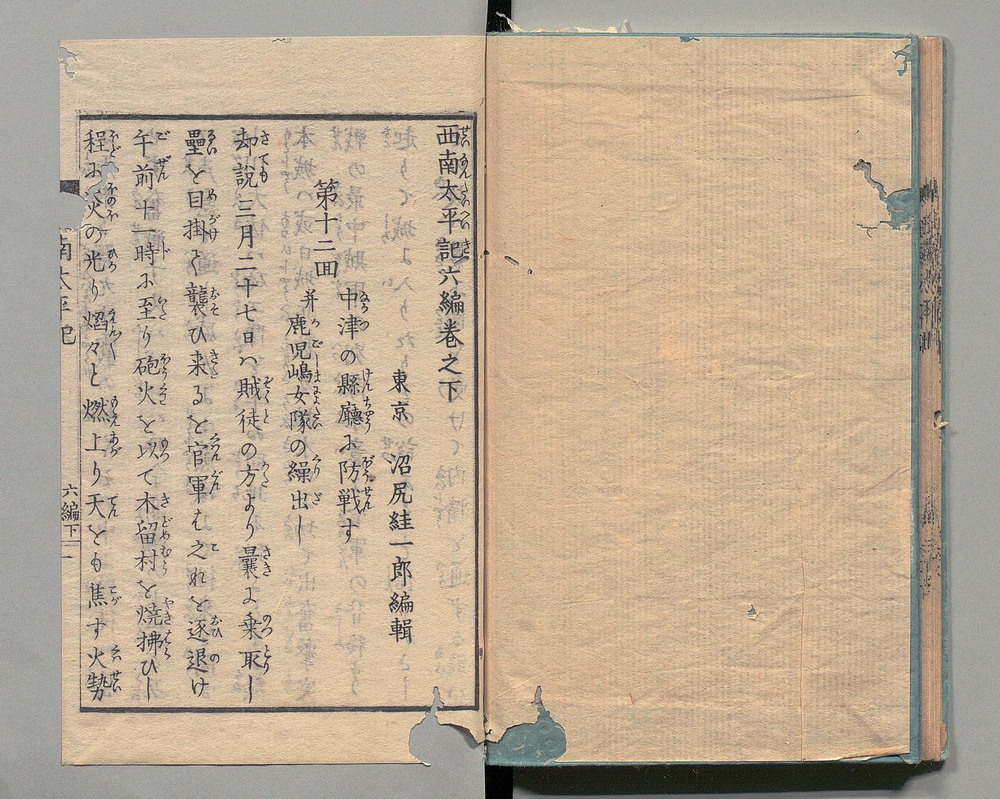 西南太平記六編巻之下
東京 沼尻絓一郎編輯
第十二回 中津の縣廳に防戦す
并鹿児嶋女隊の繰出し
却説三月二十七日ハ賊徒の方より曩に乗取し
壘を目掛て襲ひ来ると官軍む之れを逐退け
午前十一時に至り砲火を以て木留村を焼拂ひし
程に炎の光り焰々と燃上り天をも焦す火勢
南太平記
六編下
一